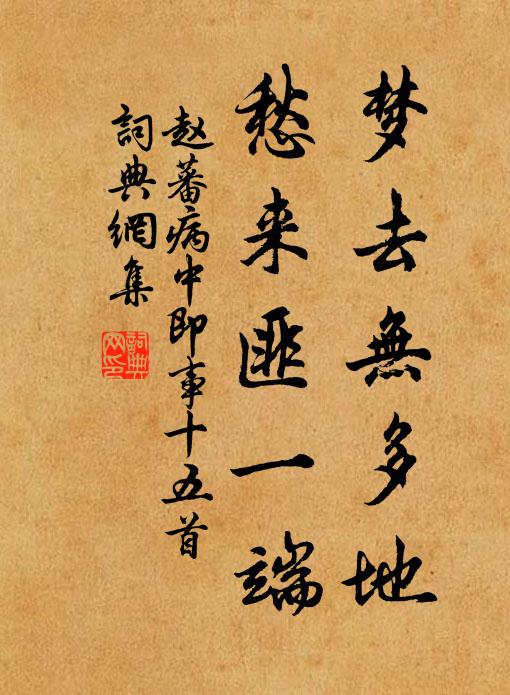 梦去無多地
愁来匪一端
赵蕃病中即事十五首
詞典網集
詞典
网印